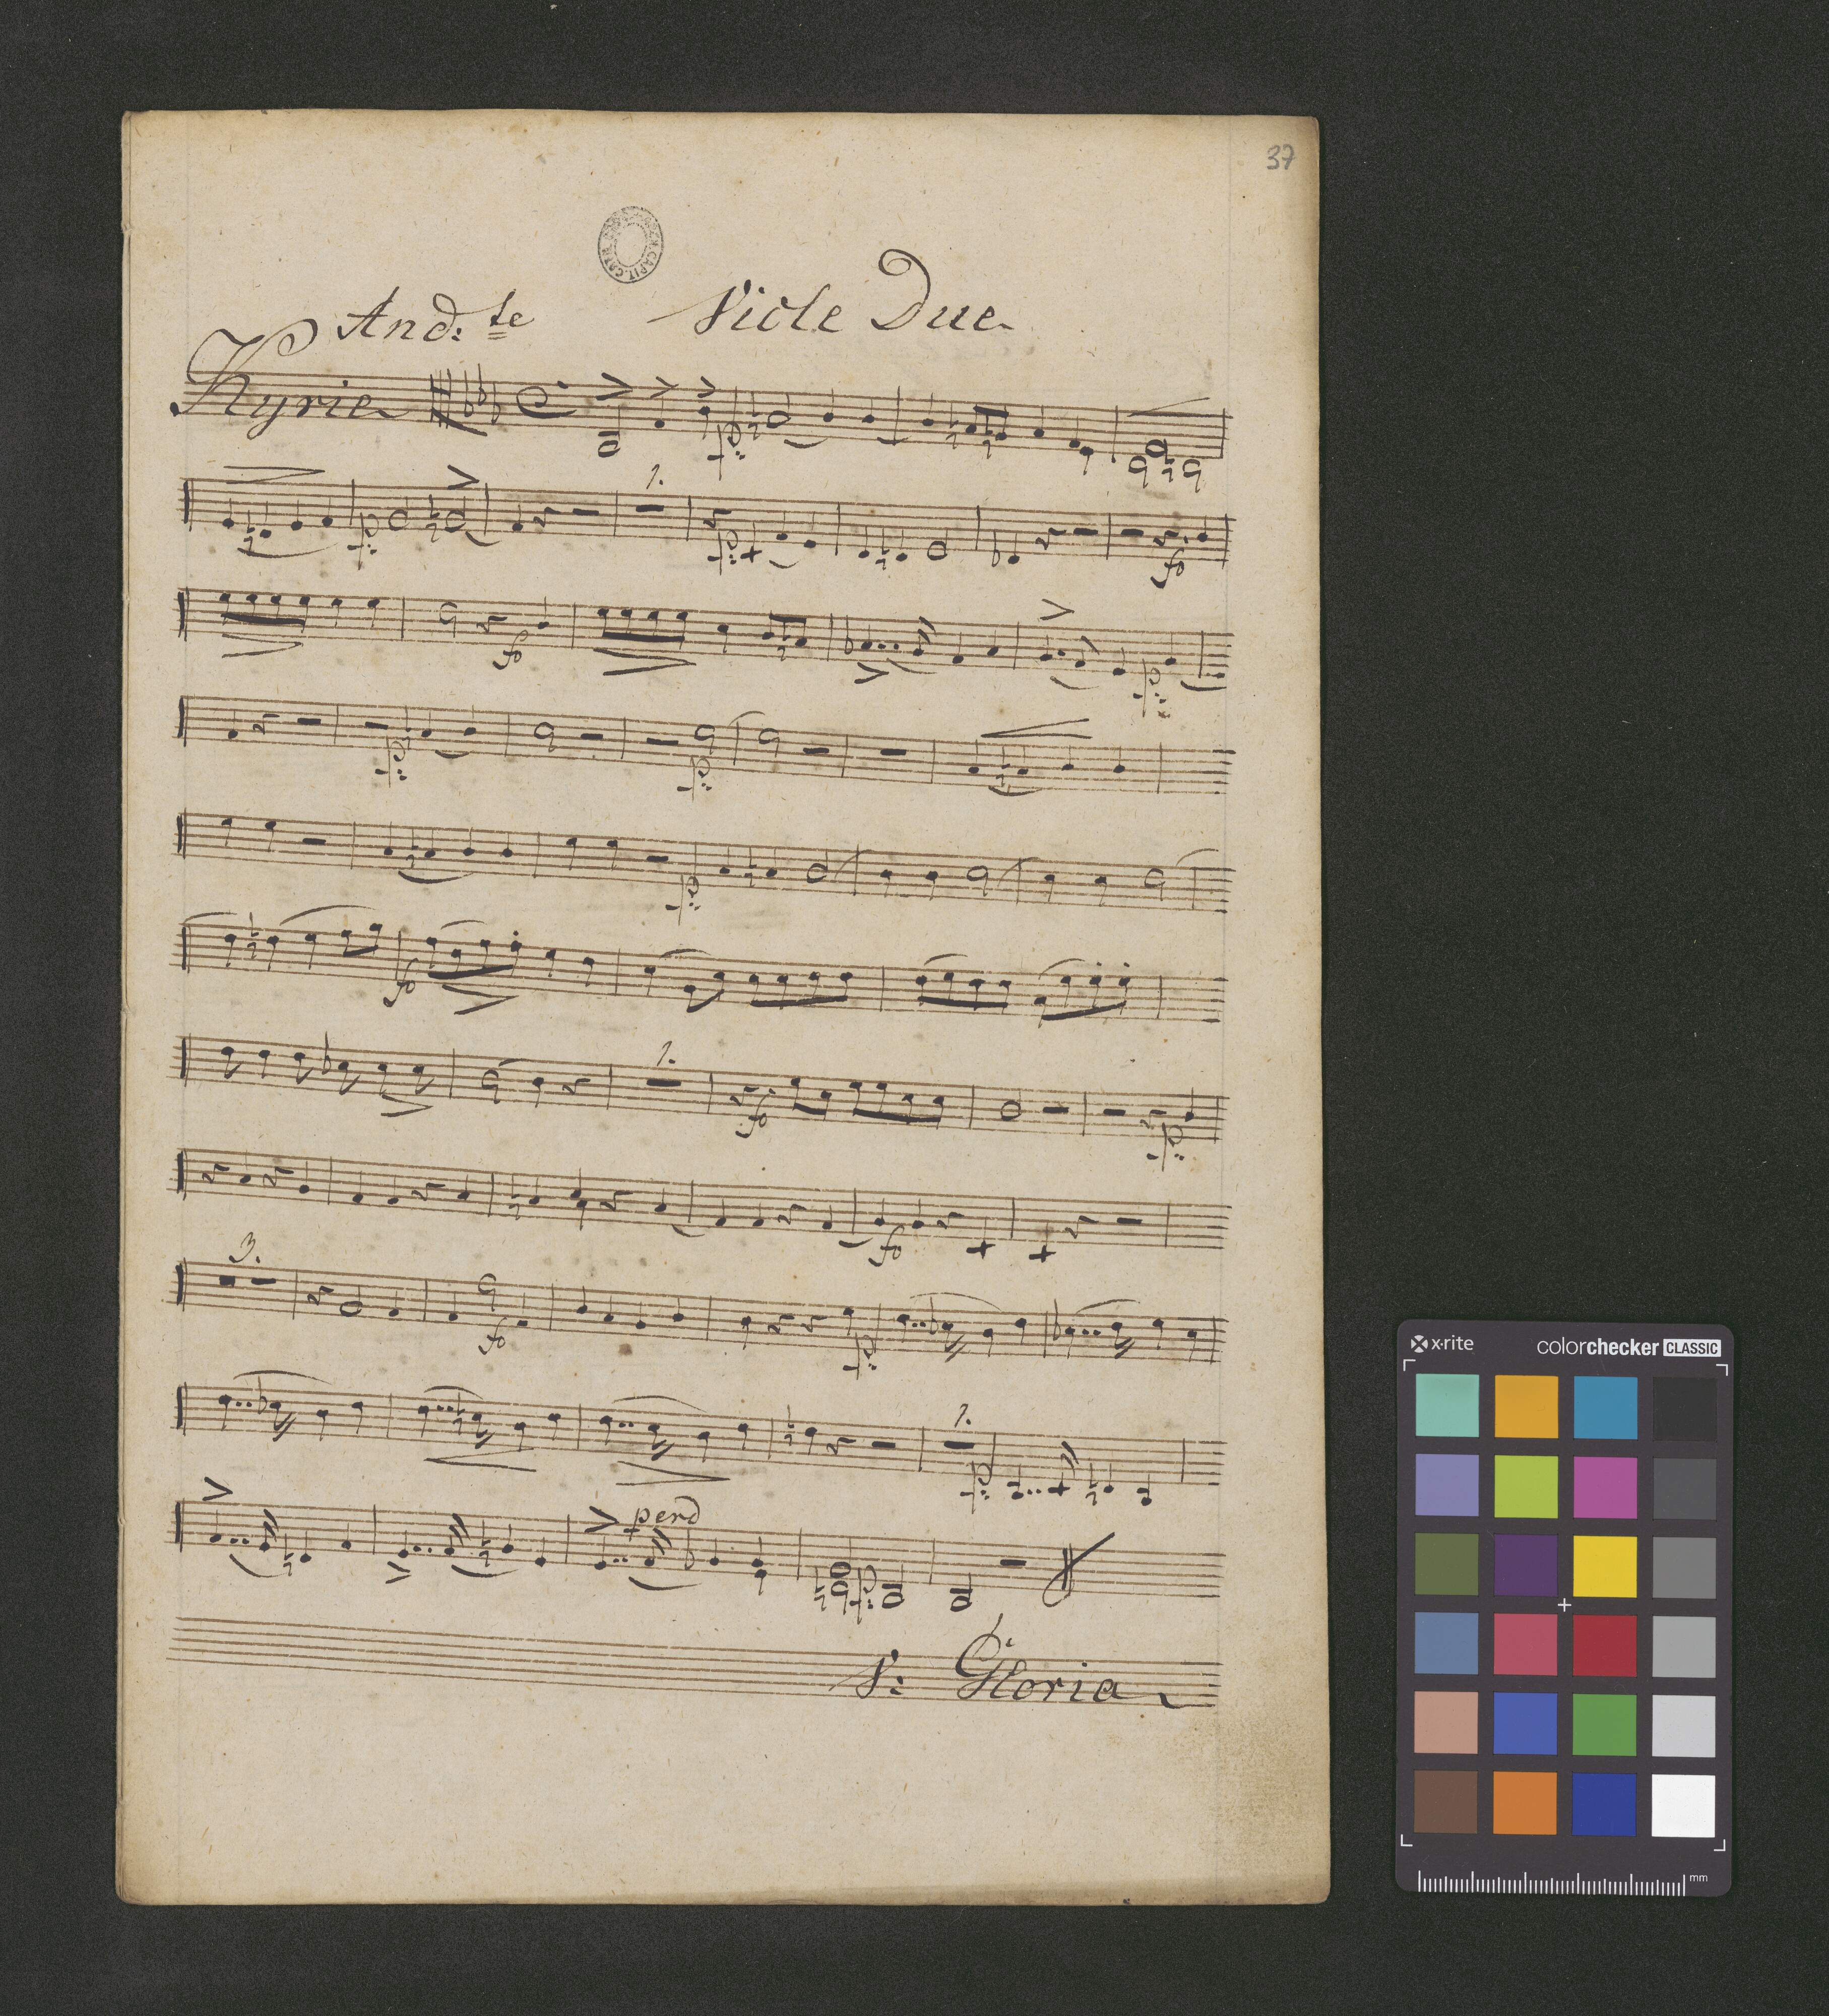 37
And:te Viole Due
Kyrie
p:
1.
p: p: fo
fo p:
p: p:
p:
fo
1.
fo p:
fo
3.
fo p:
1.
p:
perd
p:
S: Gloria
x-rite colorchecker CLASSIC
mm